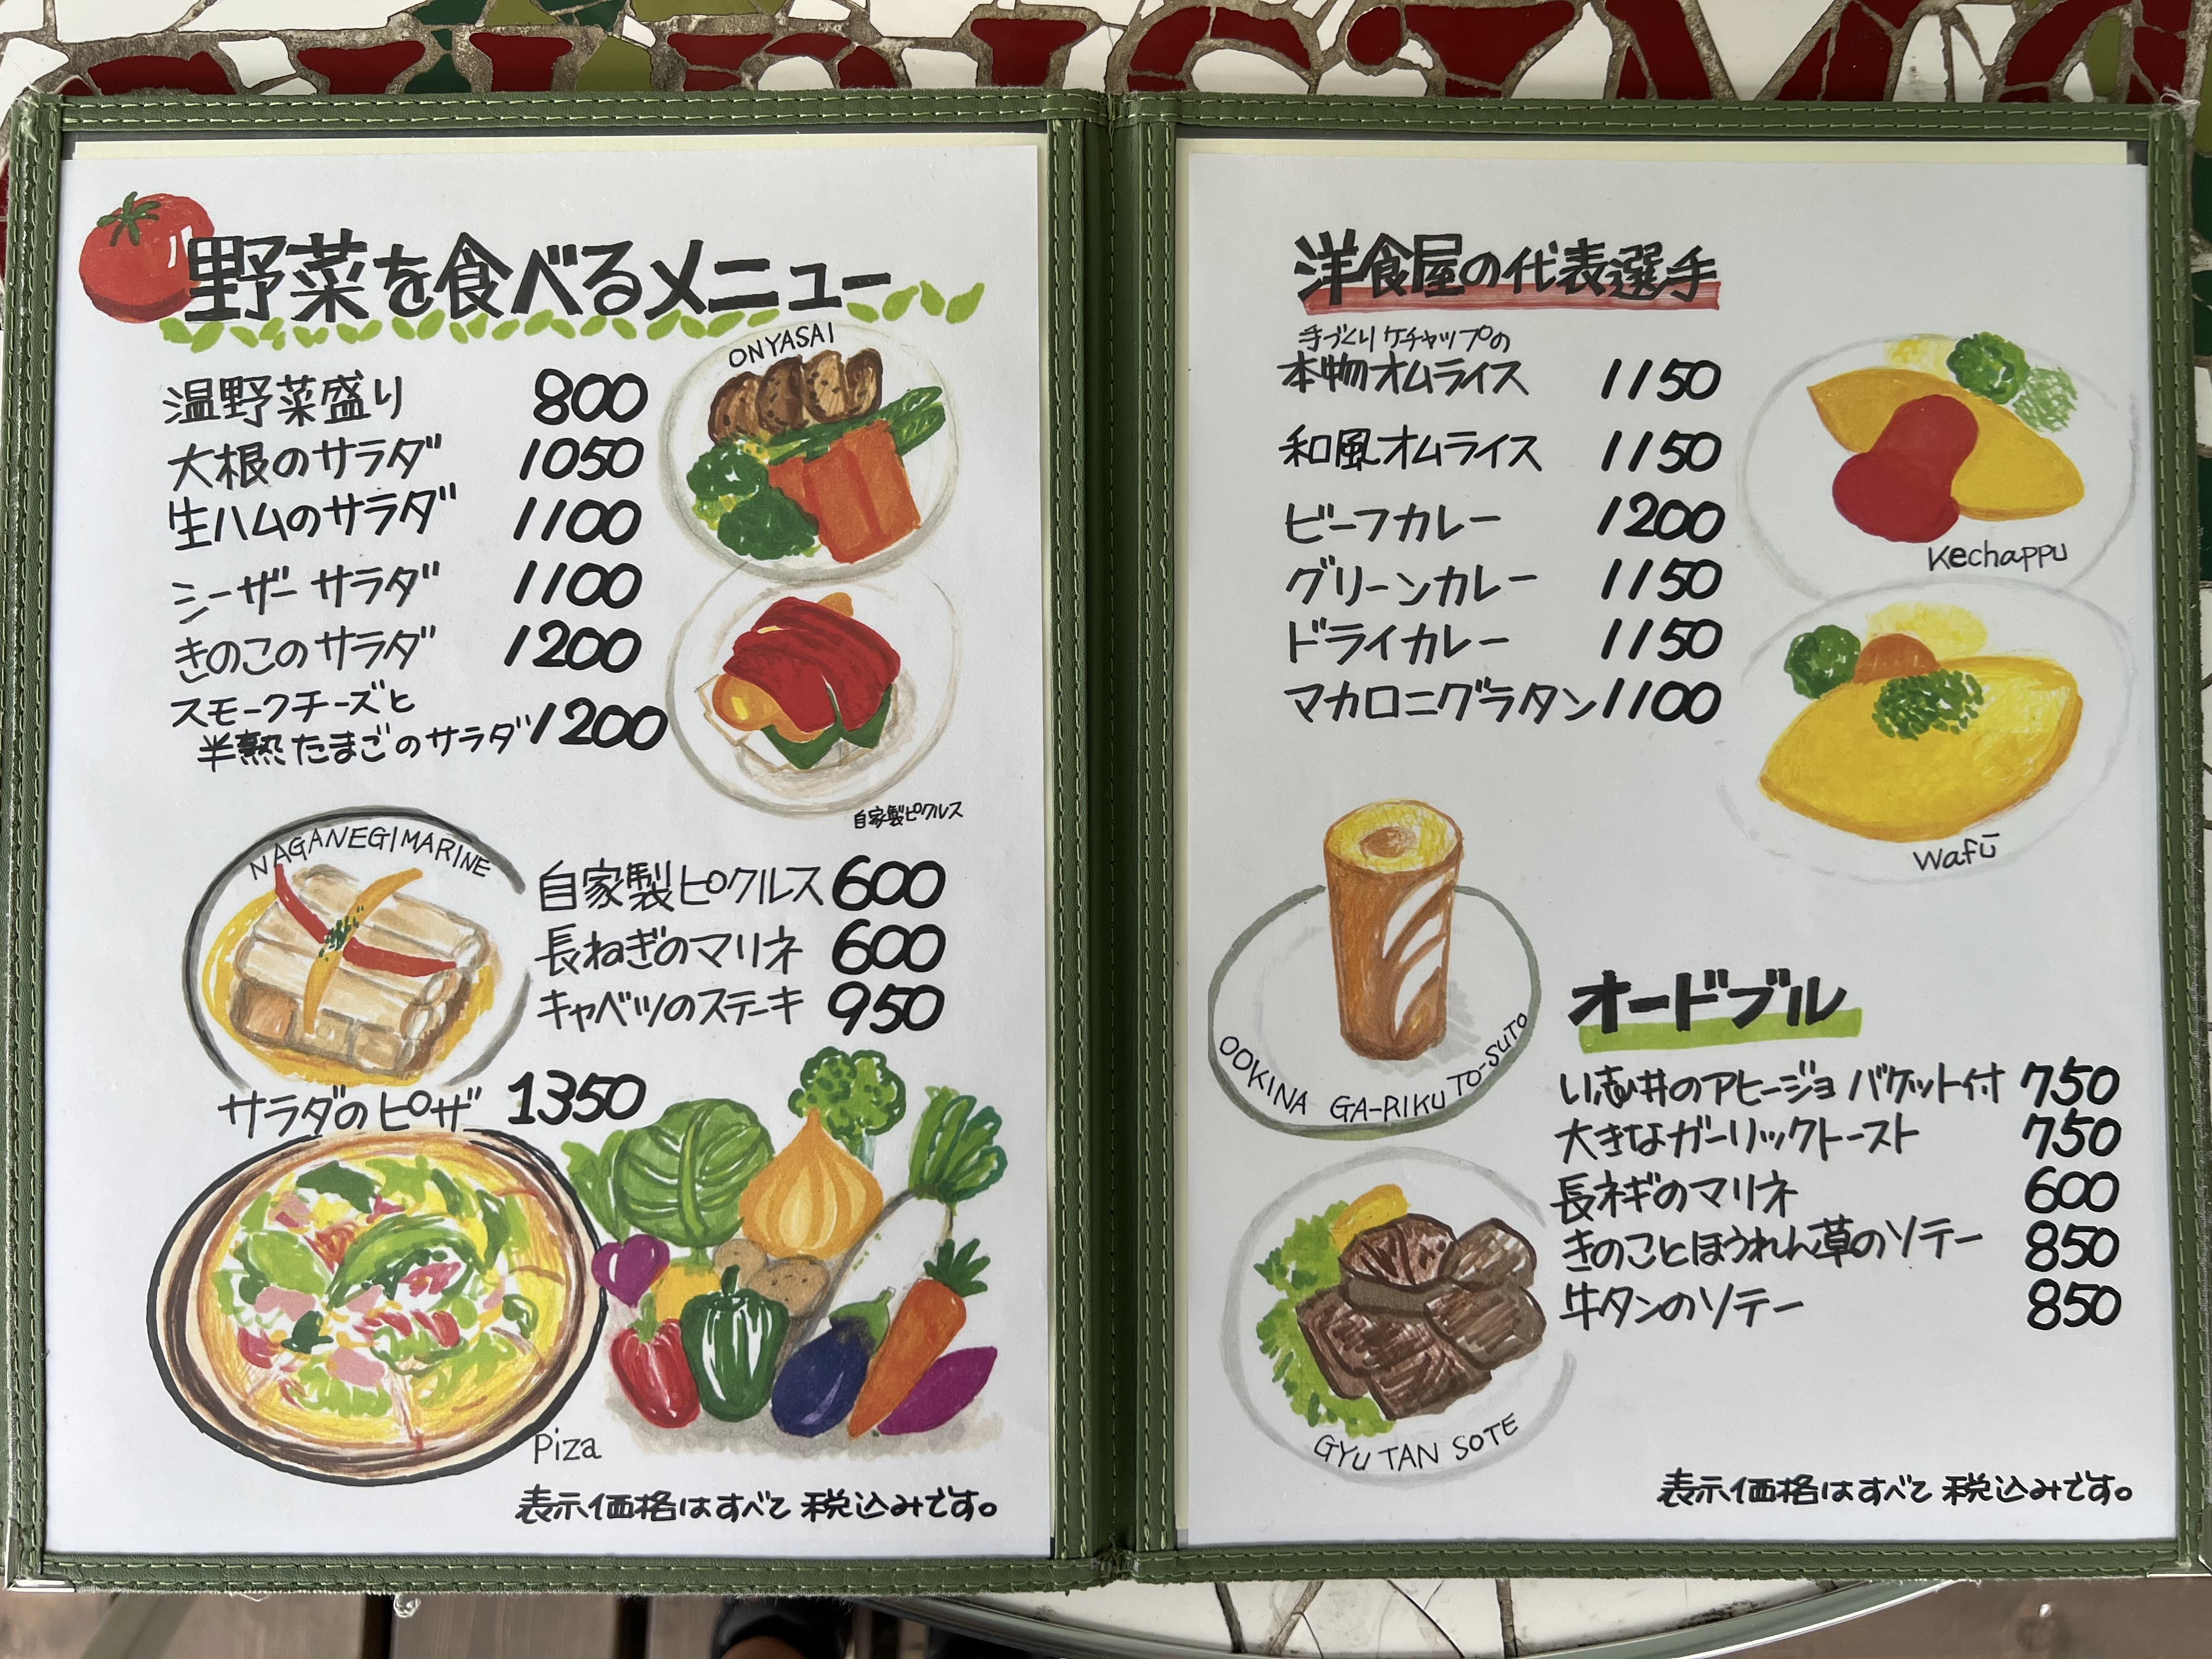 野菜を食べるメニュー
ONYASAI
温野菜盛り 800
大根のサラダ 1050
生ハムのサラダ 1100
シーザーサラダ 1100
きのこのサラダ 1200
スモークチーズと
半熟たまごのサラダ 1200
自家製ピクルス
NAGANEGI MARINE
自家製ピクルス 600
長ねぎのマリネ 600
キャベツのステーキ 950
サラダのピザ 1350
Piza
表示価格はすべて税込みです。
洋食屋の代表選手
手づくりケチャップの
本物オムライス 1150
和風オムライス 1150
ビーフカレー 1200
グリーンカレー 1150
ドライカレー 1150
マカロニグラタン 1100
Kechappu
Wafū
OOKINA GA-RIKU TO-SUTO
オードブル
のアヒージョ バケット付 750
大きなガーリックトースト 750
長ネギのマリネ 600
きのことほうれん草のソテー 850
牛タンのソテー 850
GYUTAN SOTE
表示価格はすべて税込みです。